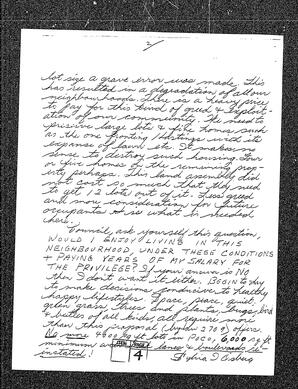 2
lot size a grave error was made. This
has resulted in a degradation of all our
neighbourhoods. There is a heavy price
to pay for this kind of greed &
ation of our community. We need to
preserve large lots & fine homes such
as the one fronting Hastings with its
expanse of lawn etc. It makes no
sense to destroy such housing. Four
or five homes of the remaining prop-
erty perhaps. This land assembly did
not cost so much that they need
to get 12 lots out of it. Less greed
and more consideration for future
occupants is what is needed
here.
Council, ask yourself this question,
WOULD I ENJOY LIVING IN THIS
NEIGHBOURHOOD UNDER THESE CONDITIONS
+ PAYING YEARS OF MY SALARY FOR
THE PRIVILEGE? If your answer is NO
then I don't want it either. Begin today
to make decisions conducive to healthy
happy lifestyles. Space, peace, quiet,
green grass, trees and plants,
& of all kinds, all require more
than this proposal offers.
No more 4000 sq ft lots in PoCo, 6,000 sq ft
minimum and lanes
instated!
ITEM
4